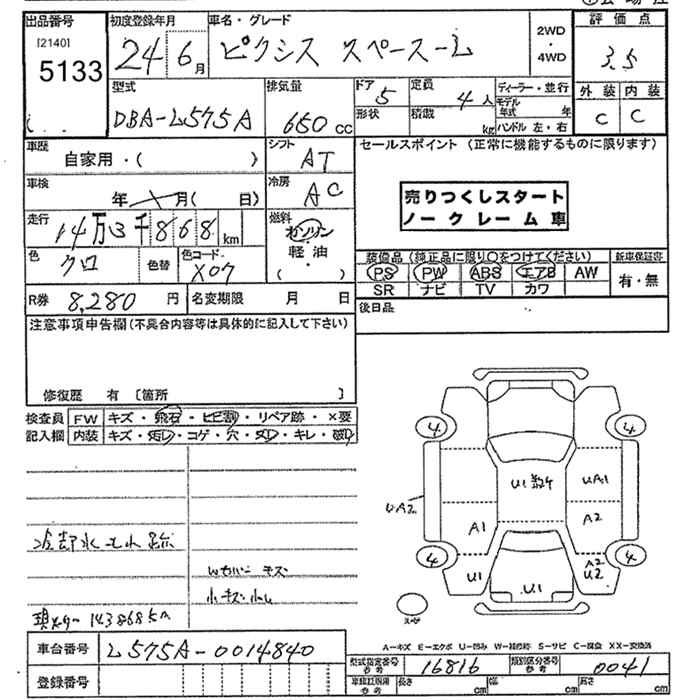 出品番号
[2140]
5133
初度登録年月
24 6月
車名・グレード
ピクシス スペース-L
2WD
・
4WD
評価点
3.5
型式
DBA-L575A
排気量
650 cc
ドア
5
形状
定員
4人
積載
kg
ディーラー・並行
モデル
年式 年
ハンドル 左・右
外装 内装
C C
車歴
自家用・( )
シフト
AT
セールスポイント (正常に機能するものに限ります)
車検
年 月( 日)
冷房
AC
売りつくしスタート
ノークレーム車
走行
14万3千868km
燃料
ガソリン
・
軽油
( )
色
クロ
色替
色コード
X07
装備品(純正品に限り○をつけてください)
新車保証書
PS PW ABS エアB AW
SR ナビ TV カワ
有・無
R券 8,280円
名変期限 月 日
後日品
注意事項申告欄(不具合内容等は具体的に記入して下さい)
修復歴 有 〔箇所 〕
検査員
記入欄
FW キズ・飛石・ヒビ割・リペア跡・×要
内装 キズ・汚レ・コゲ・穴・スレ・キレ・破レ
4 4
U1 UA1
UA2
A1 A2
4 4
U1 A2
U2
U1
冷却水モレ跡
Wカバー キズ
小キズ小ム
メーター 143868km
スペア
A-キズ E-エクボ U-凹み W-補修跡 S-サビ C-腐食 XX-交換済
車台番号
L575A-0014840
登録番号
型式指定番号
参考
16816
類別区分番号
参考
0041
車検証明書
参考
長さ cm
幅 cm
高さ cm